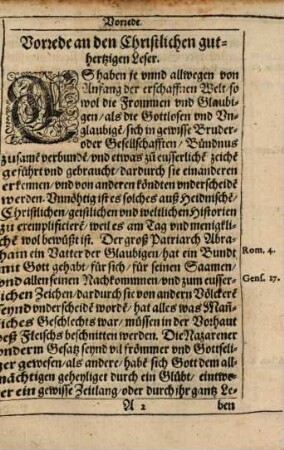 Vorrede.
Vorrede an den Christlichen gut-
hertzigen Leser.
ES haben je vnnd allwegen von
Anfang der erschaffnen Welt/ so
wol die Frommen vnd Glaubi-
gen/ als die Gottlosen vnd Vn-
glaubigē/ sich in gewisse Bruder-
oder Gesellschafften/ Bündnus
zusamē verbundē/ vnd etwas zū eusserlichē zeichē
geführt vnd gebraucht/ dardurch sie einanderen
erkennen/ vnd von anderen köndten vnderscheidē
werden. Vnnöhtig ist es solches auß Heidnischē/
Christlichen/ geistlichen vnd weltlichen Historien
zu exemplificierē/ weil es am Tag vnd menigkli-
chē wol bewüßt ist. Der groß Patriarch Abra-
ham ein Vatter der Glaubigen/ hat ein Bundt
mit Gott gehabt/ für sich/ für seinen Saamen/
vnd allen seinen Nachkommnen/ vnd zum eusser-
lichen Zeichen/ dardurch sie von andern Völckerē
seynd vnderscheidē wordē/ hat alles was Mañ-
liches Geschlechts war/ müssen in der Vorhaut
deß Fleischs beschnitten werden. Die Nazarener
vnderm Gesatz seynd vil frömmer vnd Gottseli-
ger gewesen/ als andere/ habē sich Gott dem all-
mächtigen geheyliget durch ein Glübt/ eintwe-
er ein gewisse Zeitlang/ oder durch jhr gantz Le-
A 2 ben
Rom. 4.
Gens. 17.